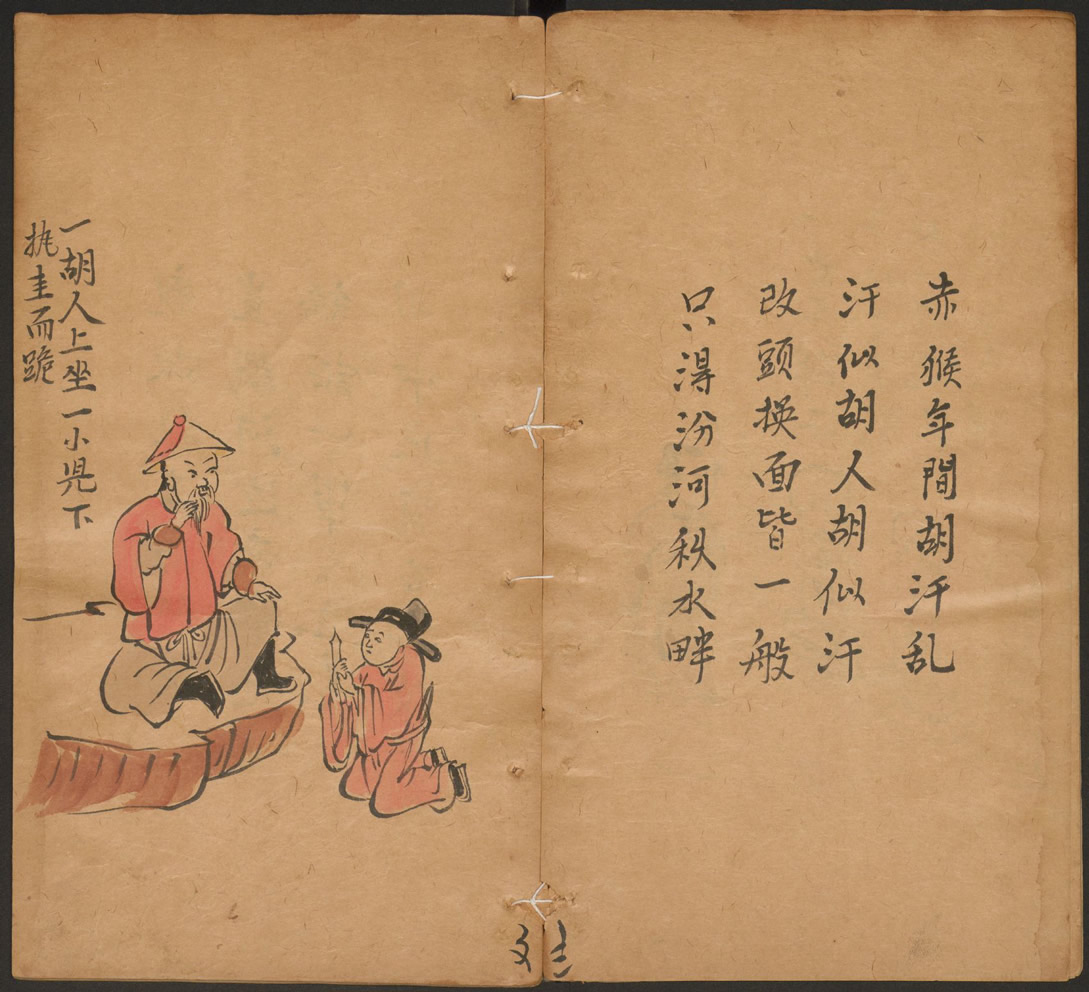 赤猴年間胡汗乱
汗似胡人胡似汗
改頭换面皆一般
只淂汾河秋水畔
一胡人上坐一小児下
执圭而跪